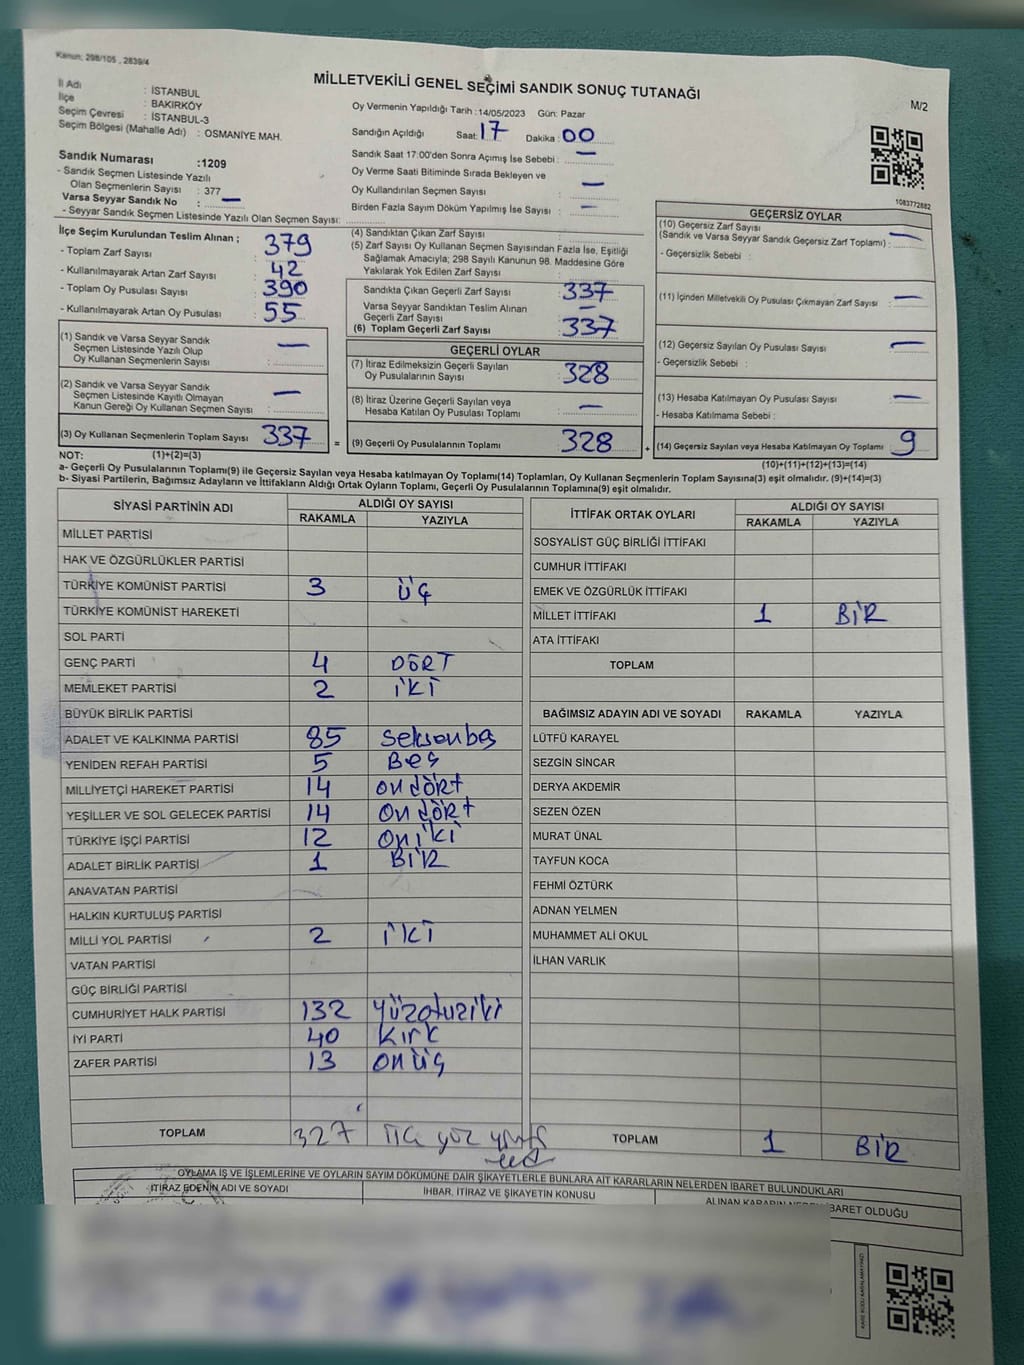 Kanun: 298/105 , 2839/4
MİLLETVEKİLİ GENEL SEÇİMİ SANDIK SONUÇ TUTANAĞI
M/2
İl Adı : İSTANBUL
İlçe : BAKIRKÖY
Seçim Çevresi : İSTANBUL-3
Seçim Bölgesi (Mahalle Adı) : OSMANİYE MAH.
Sandık Numarası :1209
- Sandık Seçmen Listesinde Yazılı
Olan Seçmenlerin Sayısı : 377
Varsa Seyyar Sandık No : —
- Seyyar Sandık Seçmen Listesinde Yazılı Olan Seçmen Sayısı:
Oy Vermenin Yapıldığı Tarih : 14/05/2023 Gün: Pazar
Sandığın Açıldığı Saat: 17 Dakika : 00
Sandık Saat 17:00'den Sonra Açımış İse Sebebi : —
Oy Verme Saati Bitiminde Sırada Bekleyen ve
Oy Kullandırılan Seçmen Sayısı : —
Birden Fazla Sayım Döküm Yapılmış İse Sayısı : —
1083772882
İlçe Seçim Kurulundan Teslim Alınan ;
- Toplam Zarf Sayısı : 379
- Kullanılmayarak Artan Zarf Sayısı : 42
- Toplam Oy Pusulası Sayısı : 390
- Kullanılmayarak Artan Oy Pusulası : 55
(1) Sandık ve Varsa Seyyar Sandık
Seçmen Listesinde Yazılı Olup
Oy Kullanan Seçmenlerin Sayısı : —
(2) Sandık ve Varsa Seyyar Sandık
Seçmen Listesinde Kayıtlı Olmayan
Kanun Gereği Oy Kullanan Seçmen Sayısı : —
(3) Oy Kullanan Seçmenlerin Toplam Sayısı : 337
(4) Sandıktan Çıkan Zarf Sayısı :
(5) Zarf Sayısı Oy Kullanan Seçmen Sayısından Fazla İse, Eşitliği
Sağlamak Amacıyla; 298 Sayılı Kanunun 98. Maddesine Göre
Yakılarak Yok Edilen Zarf Sayısı :
Sandıkta Çıkan Geçerli Zarf Sayısı : 337
Varsa Seyyar Sandıktan Teslim Alınan
Geçerli Zarf Sayısı : —
(6) Toplam Geçerli Zarf Sayısı : 337
GEÇERLİ OYLAR
(7) İtiraz Edilmeksizin Geçerli Sayılan
Oy Pusulalarının Sayısı : 328
(8) İtiraz Üzerine Geçerli Sayılan veya
Hesaba Katılan Oy Pusulası Toplamı : —
= (9) Geçerli Oy Pusulalarının Toplamı : 328
GEÇERSİZ OYLAR
(10) Geçersiz Zarf Sayısı
(Sandık ve Varsa Seyyar Sandık Geçersiz Zarf Toplamı) : —
- Geçersizlik Sebebi :
(11) İçinden Milletvekili Oy Pusulası Çıkmayan Zarf Sayısı : —
(12) Geçersiz Sayılan Oy Pusulası Sayısı : —
- Geçersizlik Sebebi :
(13) Hesaba Katılmayan Oy Pusulası Sayısı : —
- Hesaba Katılmama Sebebi :
+ (14) Geçersiz Sayılan veya Hesaba Katılmayan Oy Toplamı : 9
NOT: (1)+(2)=(3)
(10)+(11)+(12)+(13)=(14)
a- Geçerli Oy Pusulalarının Toplamı(9) ile Geçersiz Sayılan veya Hesaba katılmayan Oy Toplamı(14) Toplamları, Oy Kullanan Seçmenlerin Toplam Sayısına(3) eşit olmalıdır. (9)+(14)=(3)
b- Siyasi Partilerin, Bağımsız Adayların ve İttifakların Aldığı Ortak Oyların Toplamı, Geçerli Oy Pusulalarının Toplamına(9) eşit olmalıdır.
SİYASİ PARTİNİN ADI ALDIĞI OY SAYISI
RAKAMLA YAZIYLA
MİLLET PARTİSİ
HAK VE ÖZGÜRLÜKLER PARTİSİ
TÜRKİYE KOMÜNİST PARTİSİ 3 üç
TÜRKİYE KOMÜNİST HAREKETİ
SOL PARTİ
GENÇ PARTİ 4 DÖRT
MEMLEKET PARTİSİ 2 iki
BÜYÜK BİRLİK PARTİSİ
ADALET VE KALKINMA PARTİSİ 85 seksenbeş
YENİDEN REFAH PARTİSİ 5 Beş
MİLLİYETÇİ HAREKET PARTİSİ 14 on dört
YEŞİLLER VE SOL GELECEK PARTİSİ 14 on dört
TÜRKİYE İŞÇİ PARTİSİ 12 oniki
ADALET BİRLİK PARTİSİ 1 BİR
ANAVATAN PARTİSİ
HALKIN KURTULUŞ PARTİSİ
MİLLİ YOL PARTİSİ 2 iki
VATAN PARTİSİ
GÜÇ BİRLİĞİ PARTİSİ
CUMHURİYET HALK PARTİSİ 132 yüzotuziki
İYİ PARTİ 40 kırk
ZAFER PARTİSİ 13 onüç
TOPLAM 327
İTTİFAK ORTAK OYLARI ALDIĞI OY SAYISI
RAKAMLA YAZIYLA
SOSYALİST GÜÇ BİRLİĞİ İTTİFAKI
CUMHUR İTTİFAKI
EMEK VE ÖZGÜRLÜK İTTİFAKI
MİLLET İTTİFAKI 1 BİR
ATA İTTİFAKI
TOPLAM
BAĞIMSIZ ADAYIN ADI VE SOYADI RAKAMLA YAZIYLA
LÜTFÜ KARAYEL
SEZGİN SİNCAR
DERYA AKDEMİR
SEZEN ÖZEN
MURAT ÜNAL
TAYFUN KOCA
FEHMİ ÖZTÜRK
ADNAN YELMEN
MUHAMMET ALİ OKUL
İLHAN VARLIK
TOPLAM 1 BİR
OYLAMA İŞ VE İŞLEMLERİNE VE OYLARIN SAYIM DÖKÜMÜNE DAİR ŞİKAYETLERLE BUNLARA AİT KARARLARIN NELERDEN İBARET BULUNDUKLARI
İTİRAZ EDENİN ADI VE SOYADI İHBAR, İTİRAZ VE ŞİKAYETİN KONUSU ALINAN KARARIN NEDEN İBARET OLDUĞU